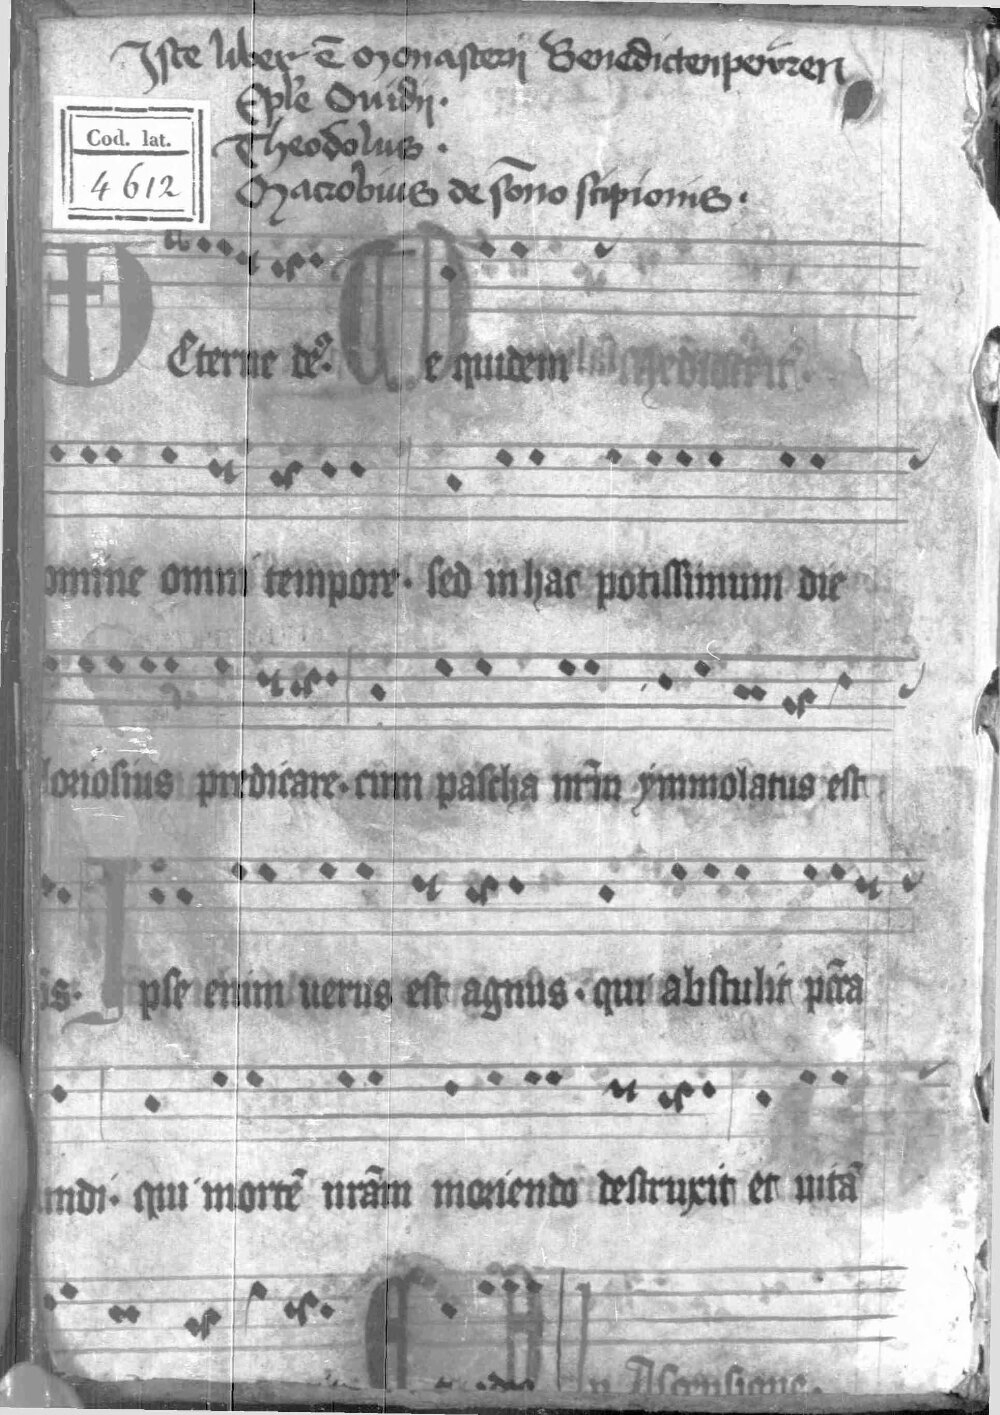 Iste liber ē monasterii Benedictenpewren
Epl'e Ouidij.
Theodolus.
Macrobius de sōno scipionis.
Cod. lat.
4612
Eterne de9. Me quidem
omine omni tempore. sed in hac potissimum die
loriosius predicare. cum pascha nr̄m ymmolatus est
is. Ipse enim uerus est agnus. qui abstulit pc̄ca
undi. qui mortē nrām moriendo destruxit et uitā
In Ascensione.